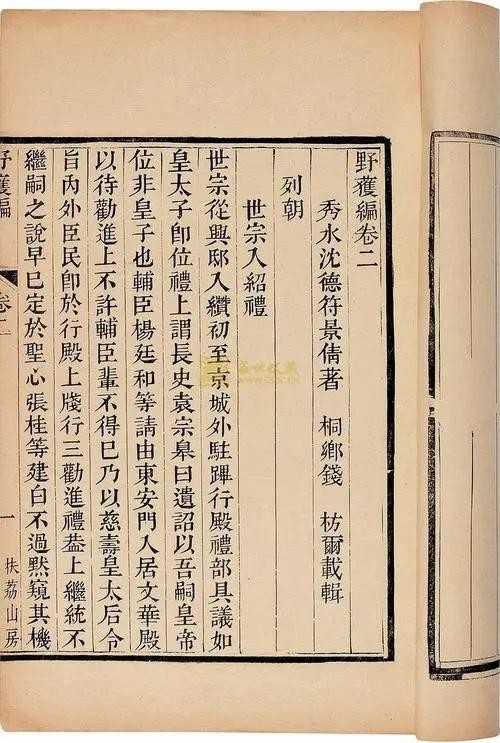 野獲編卷二
秀水沈德符景倩著　桐鄉錢　枋爾載輯
列朝
世宗入紹禮
世宗從興邸入纘初至京城外駐蹕行殿禮部具議如
皇太子卽位禮上謂長史袁宗皋曰遺詔以吾嗣皇帝
位非皇子也輔臣楊廷和等請由東安門入居文華殿
以待勸進上不許輔臣輩不得已乃以慈壽皇太后令
旨內外臣民卽於行殿上牋行三勸進禮葢上繼統不
繼嗣之說早已定於聖心張桂等建白不過默窺其機
野獲編
卷二
一
扶荔山房